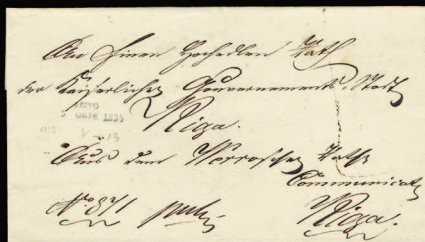 An Einen Hochedlen Rath
der Kaiserlichen Gouvernements-Stadt
Riga.
Aus dem Werroschen Rathe
Communicat
No. 871
Riga.